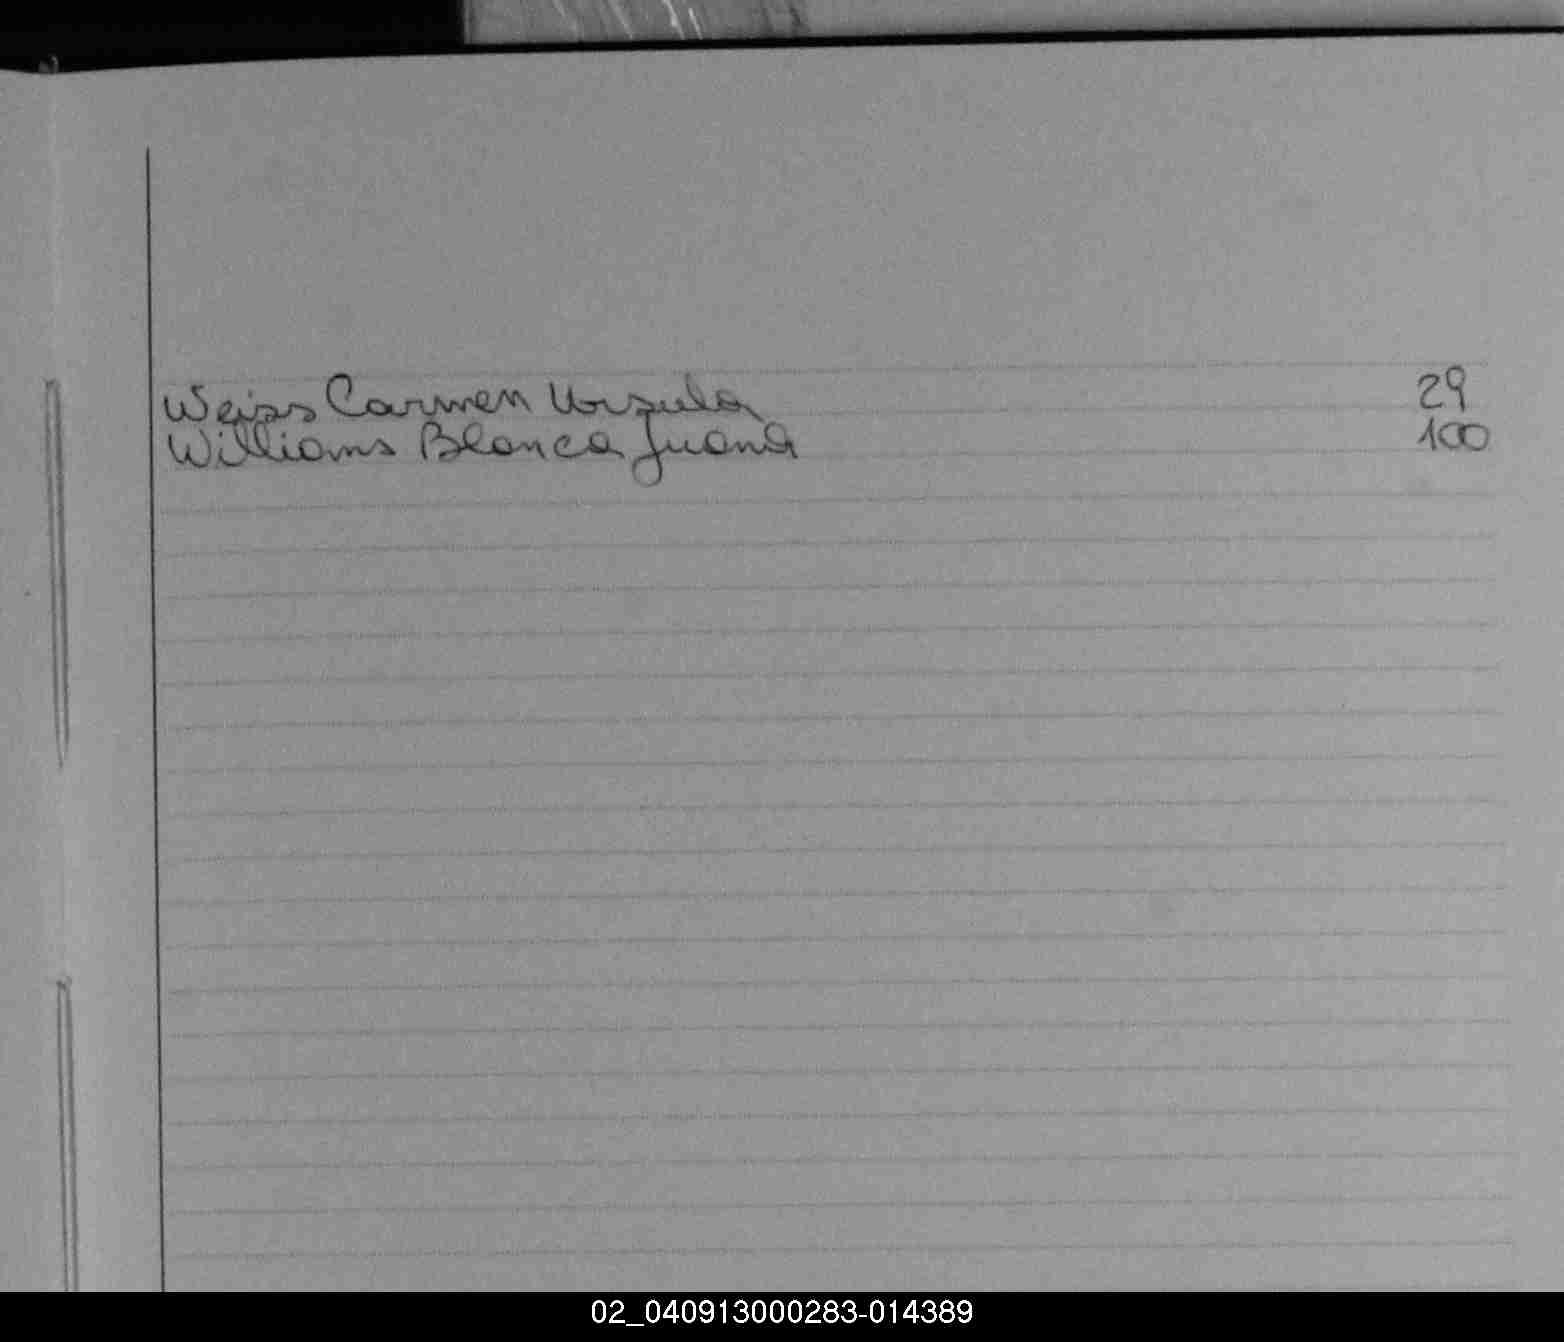 Weiss Carmen Ursula 29
Williams Blanca Juana 100
02_040913000283-014389